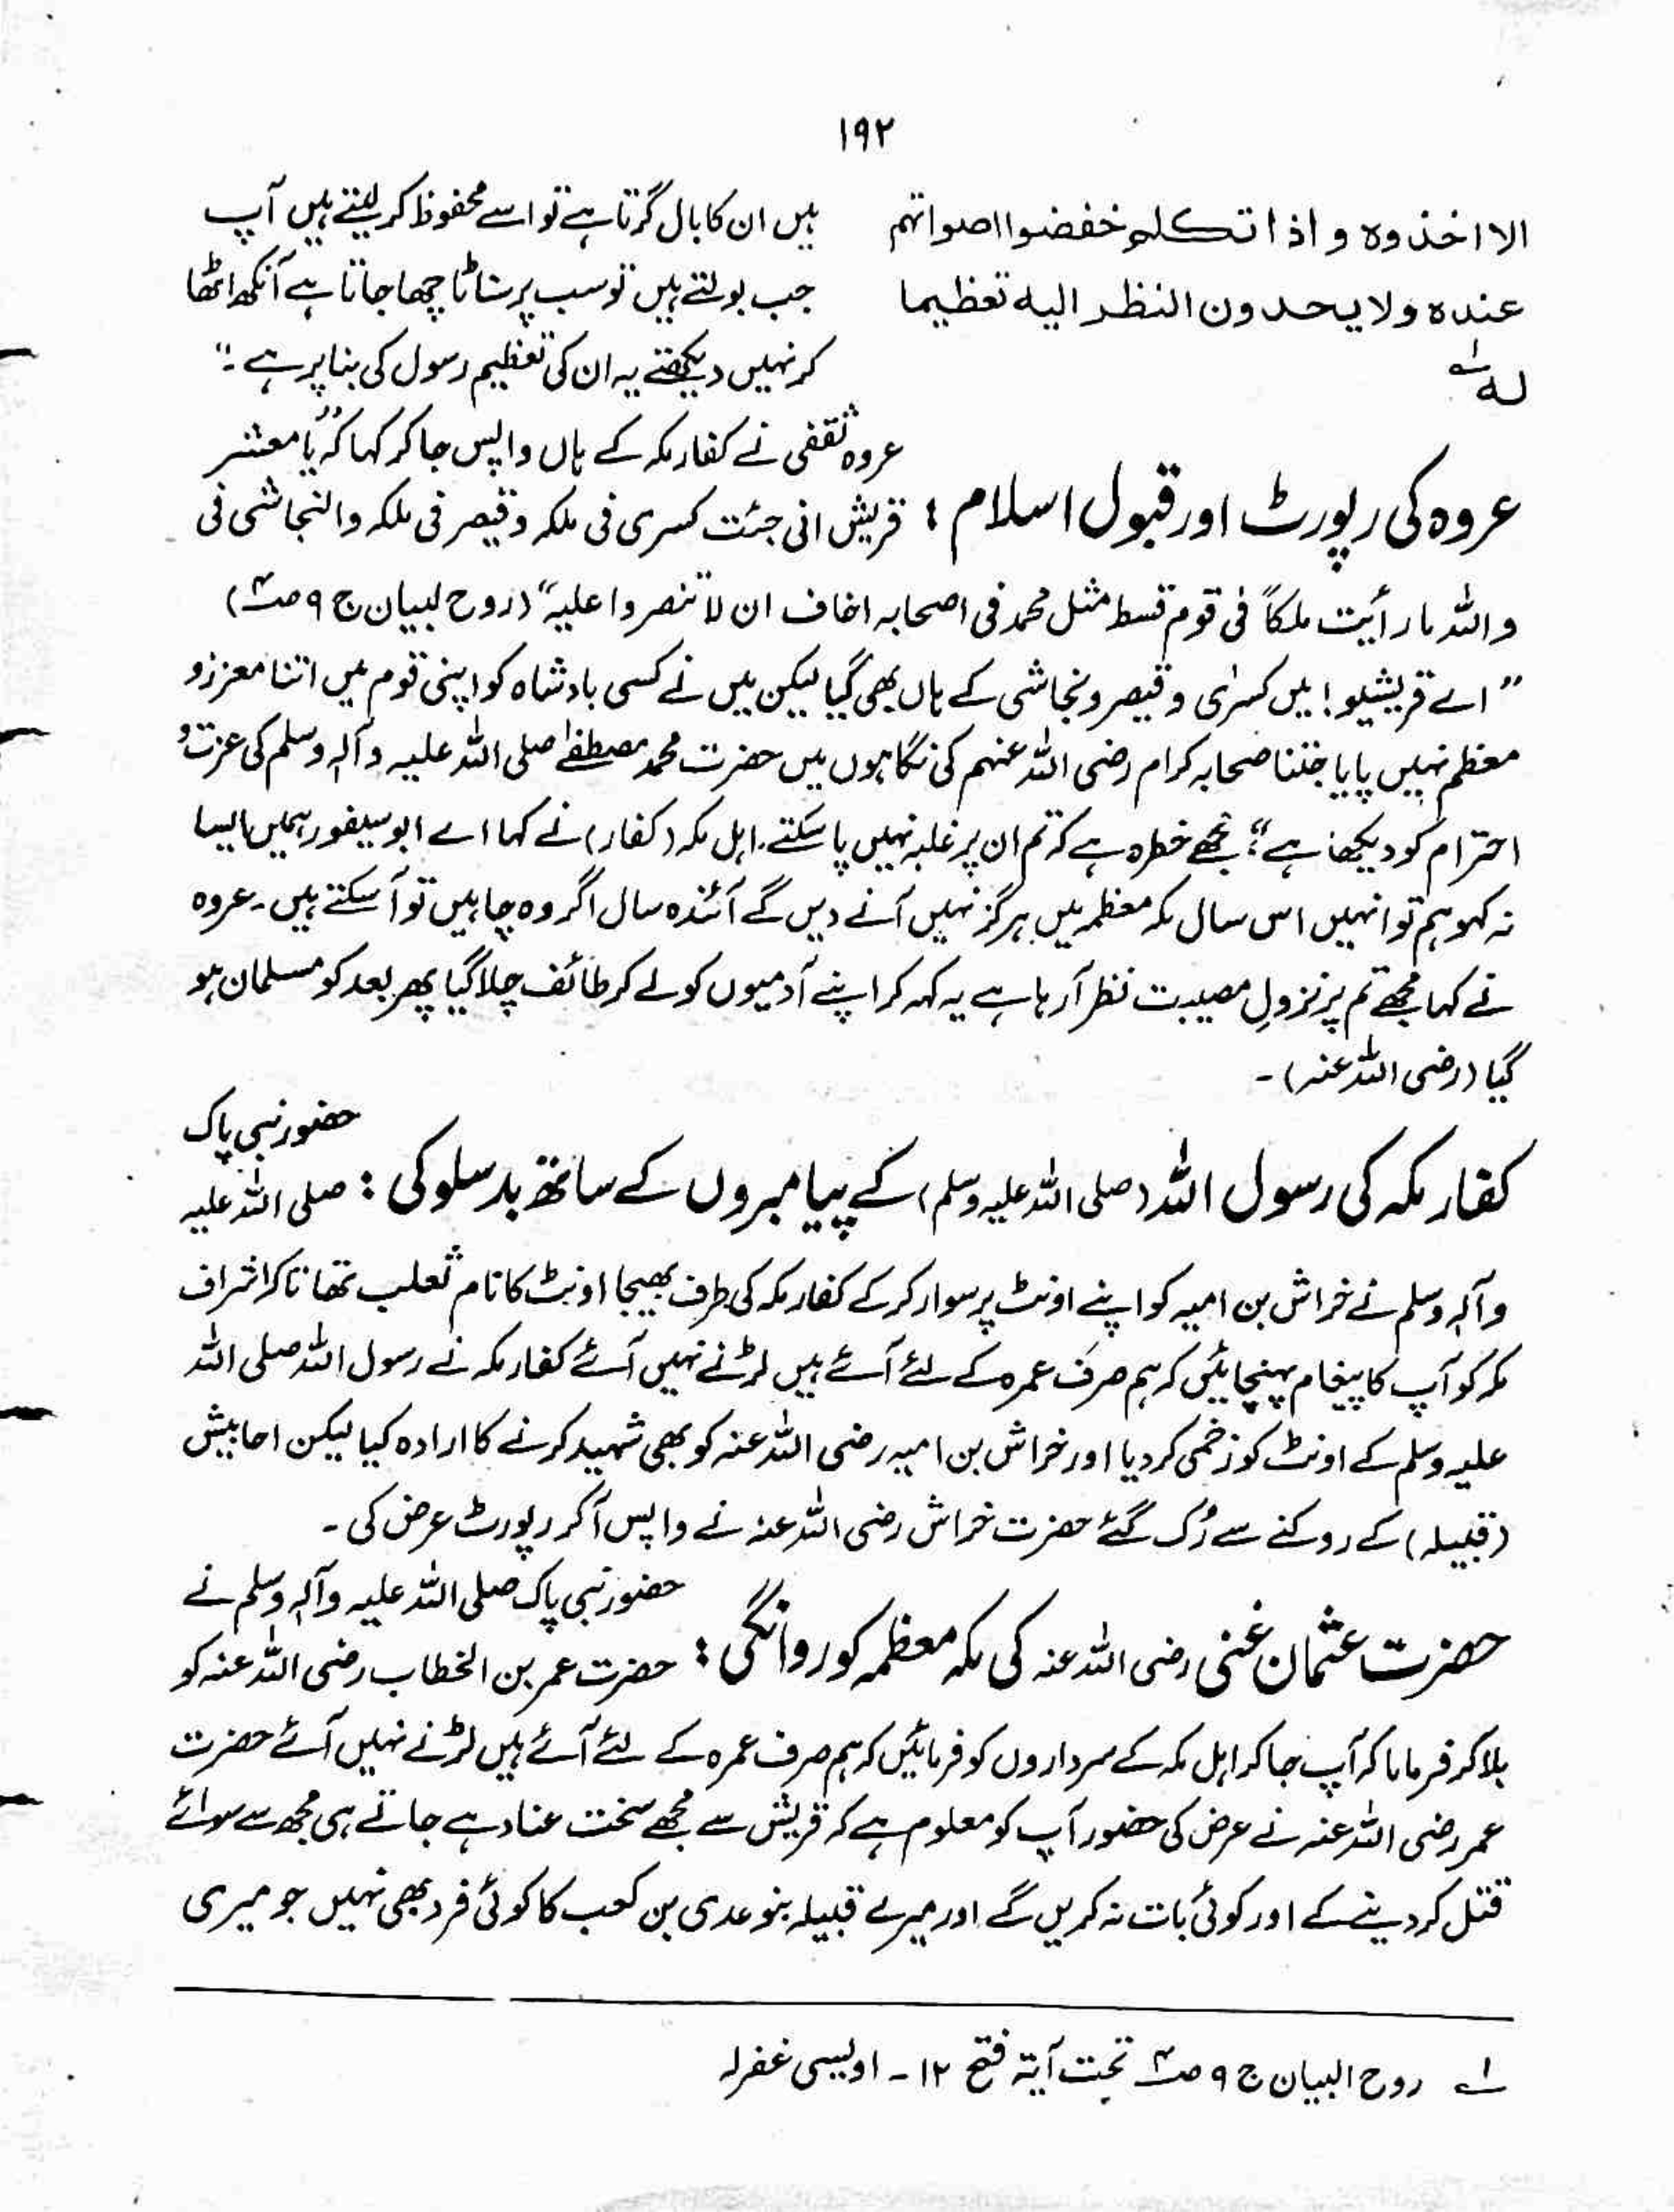 ۱۹۲
الا اخذوه و اذا تكلم خفضوا اصواتهم
عنده ولا يحدون النظر اليه تعظيما
له ؎۱
ہیں ان کا بال گرتا ہے تو اسے محفوظ کر لیتے ہیں آپ
جب بولتے ہیں تو سب پر سناٹا چھا جاتا ہے آنکھ اٹھا
کر نہیں دیکھتے یہ ان کی تعظیم رسول کی بنا پر ہے۔"
عروہ کی رپورٹ اور قبول اسلام :
عروہ ثقفی نے کفار مکہ کے ہاں واپس جا کر کہا کہ "یا معشر
قریش انی جئت کسری فی ملکہ وقیصر فی ملکہ والنجاشی فی
واللہ ما رأیت ملکاً فی قوم قسط مثل محمد فی اصحابہ اخاف ان لا تنصروا علیہ" (روح لبیان ج ۹ ص)
"اے قریشیو! میں کسرٰی و قیصر و نجاشی کے ہاں بھی گیا لیکن میں نے کسی بادشاہ کو اپنی قوم میں اتنا معزز و
معظم نہیں پایا جتنا صحابہ کرام رضی اللہ عنہم کی نگاہوں میں حضرت محمد مصطفےٰ صلی اللہ علیہ وآلہ وسلم کی عزت و
احترام کو دیکھا ہے"؛ مجھے خطرہ ہے کہ تم ان پر غلبہ نہیں پا سکتے۔ اہل مکہ (کفار) نے کہا اے ابو سیفور ہمیں ایسا
نہ کہو ہم تو انہیں اس سال مکہ معظمہ میں ہرگز نہیں آنے دیں گے آئندہ سال اگر وہ چاہیں تو آ سکتے ہیں۔ عروہ
نے کہا مجھے تم پر نزولِ مصیبت نظر آ رہا ہے یہ کہہ کر اپنے آدمیوں کو لے کر طائف چلا گیا پھر بعد کو مسلمان ہو
گیا (رضی اللہ عنہ)۔
کفار مکہ کی رسول اللہ (صلی اللہ علیہ وسلم) کے پیامبروں کے ساتھ بدسلوکی :
حضور نبی پاک
صلی اللہ علیہ
وآلہ وسلم نے خراش بن امیہ کو اپنے اونٹ پر سوار کر کے کفار مکہ کی طرف بھیجا اونٹ کا نام ثعلب تھا تاکہ اشراف
مکہ کو آپ کا پیغام پہنچائیں کہ ہم صرف عمرہ کے لئے آئے ہیں لڑنے نہیں آئے کفار مکہ نے رسول اللہ صلی اللہ
علیہ وسلم کے اونٹ کو زخمی کر دیا اور خراش بن امیہ رضی اللہ عنہ کو بھی شہید کرنے کا ارادہ کیا لیکن احابیش
(قبیلہ) کے روکنے سے رُک گئے حضرت خراش رضی اللہ عنہ نے واپس آ کر رپورٹ عرض کی۔
حضرت عثمان غنی رضی اللہ عنہ کی مکہ معظمہ کو روانگی :
حضور نبی پاک صلی اللہ علیہ وآلہ وسلم نے
حضرت عمر بن الخطاب رضی اللہ عنہ کو
بلا کر فرمایا کہ آپ جا کر اہل مکہ کے سرداروں کو فرمائیں کہ ہم صرف عمرہ کے لئے آئے ہیں لڑنے نہیں آئے حضرت
عمر رضی اللہ عنہ نے عرض کی حضور آپ کو معلوم ہے کہ قریش سے مجھے سخت عناد ہے جاتے ہی مجھ سے سوائے
قتل کر دینے کے اور کوئی بات نہ کریں گے اور میرے قبیلہ بنو عدی بن کعب کا کوئی فرد بھی نہیں جو میری
؎۱ روح البیان ج ۹ ص تحت آیۃ فتح ۱۲۔ اویسی غفرلہ